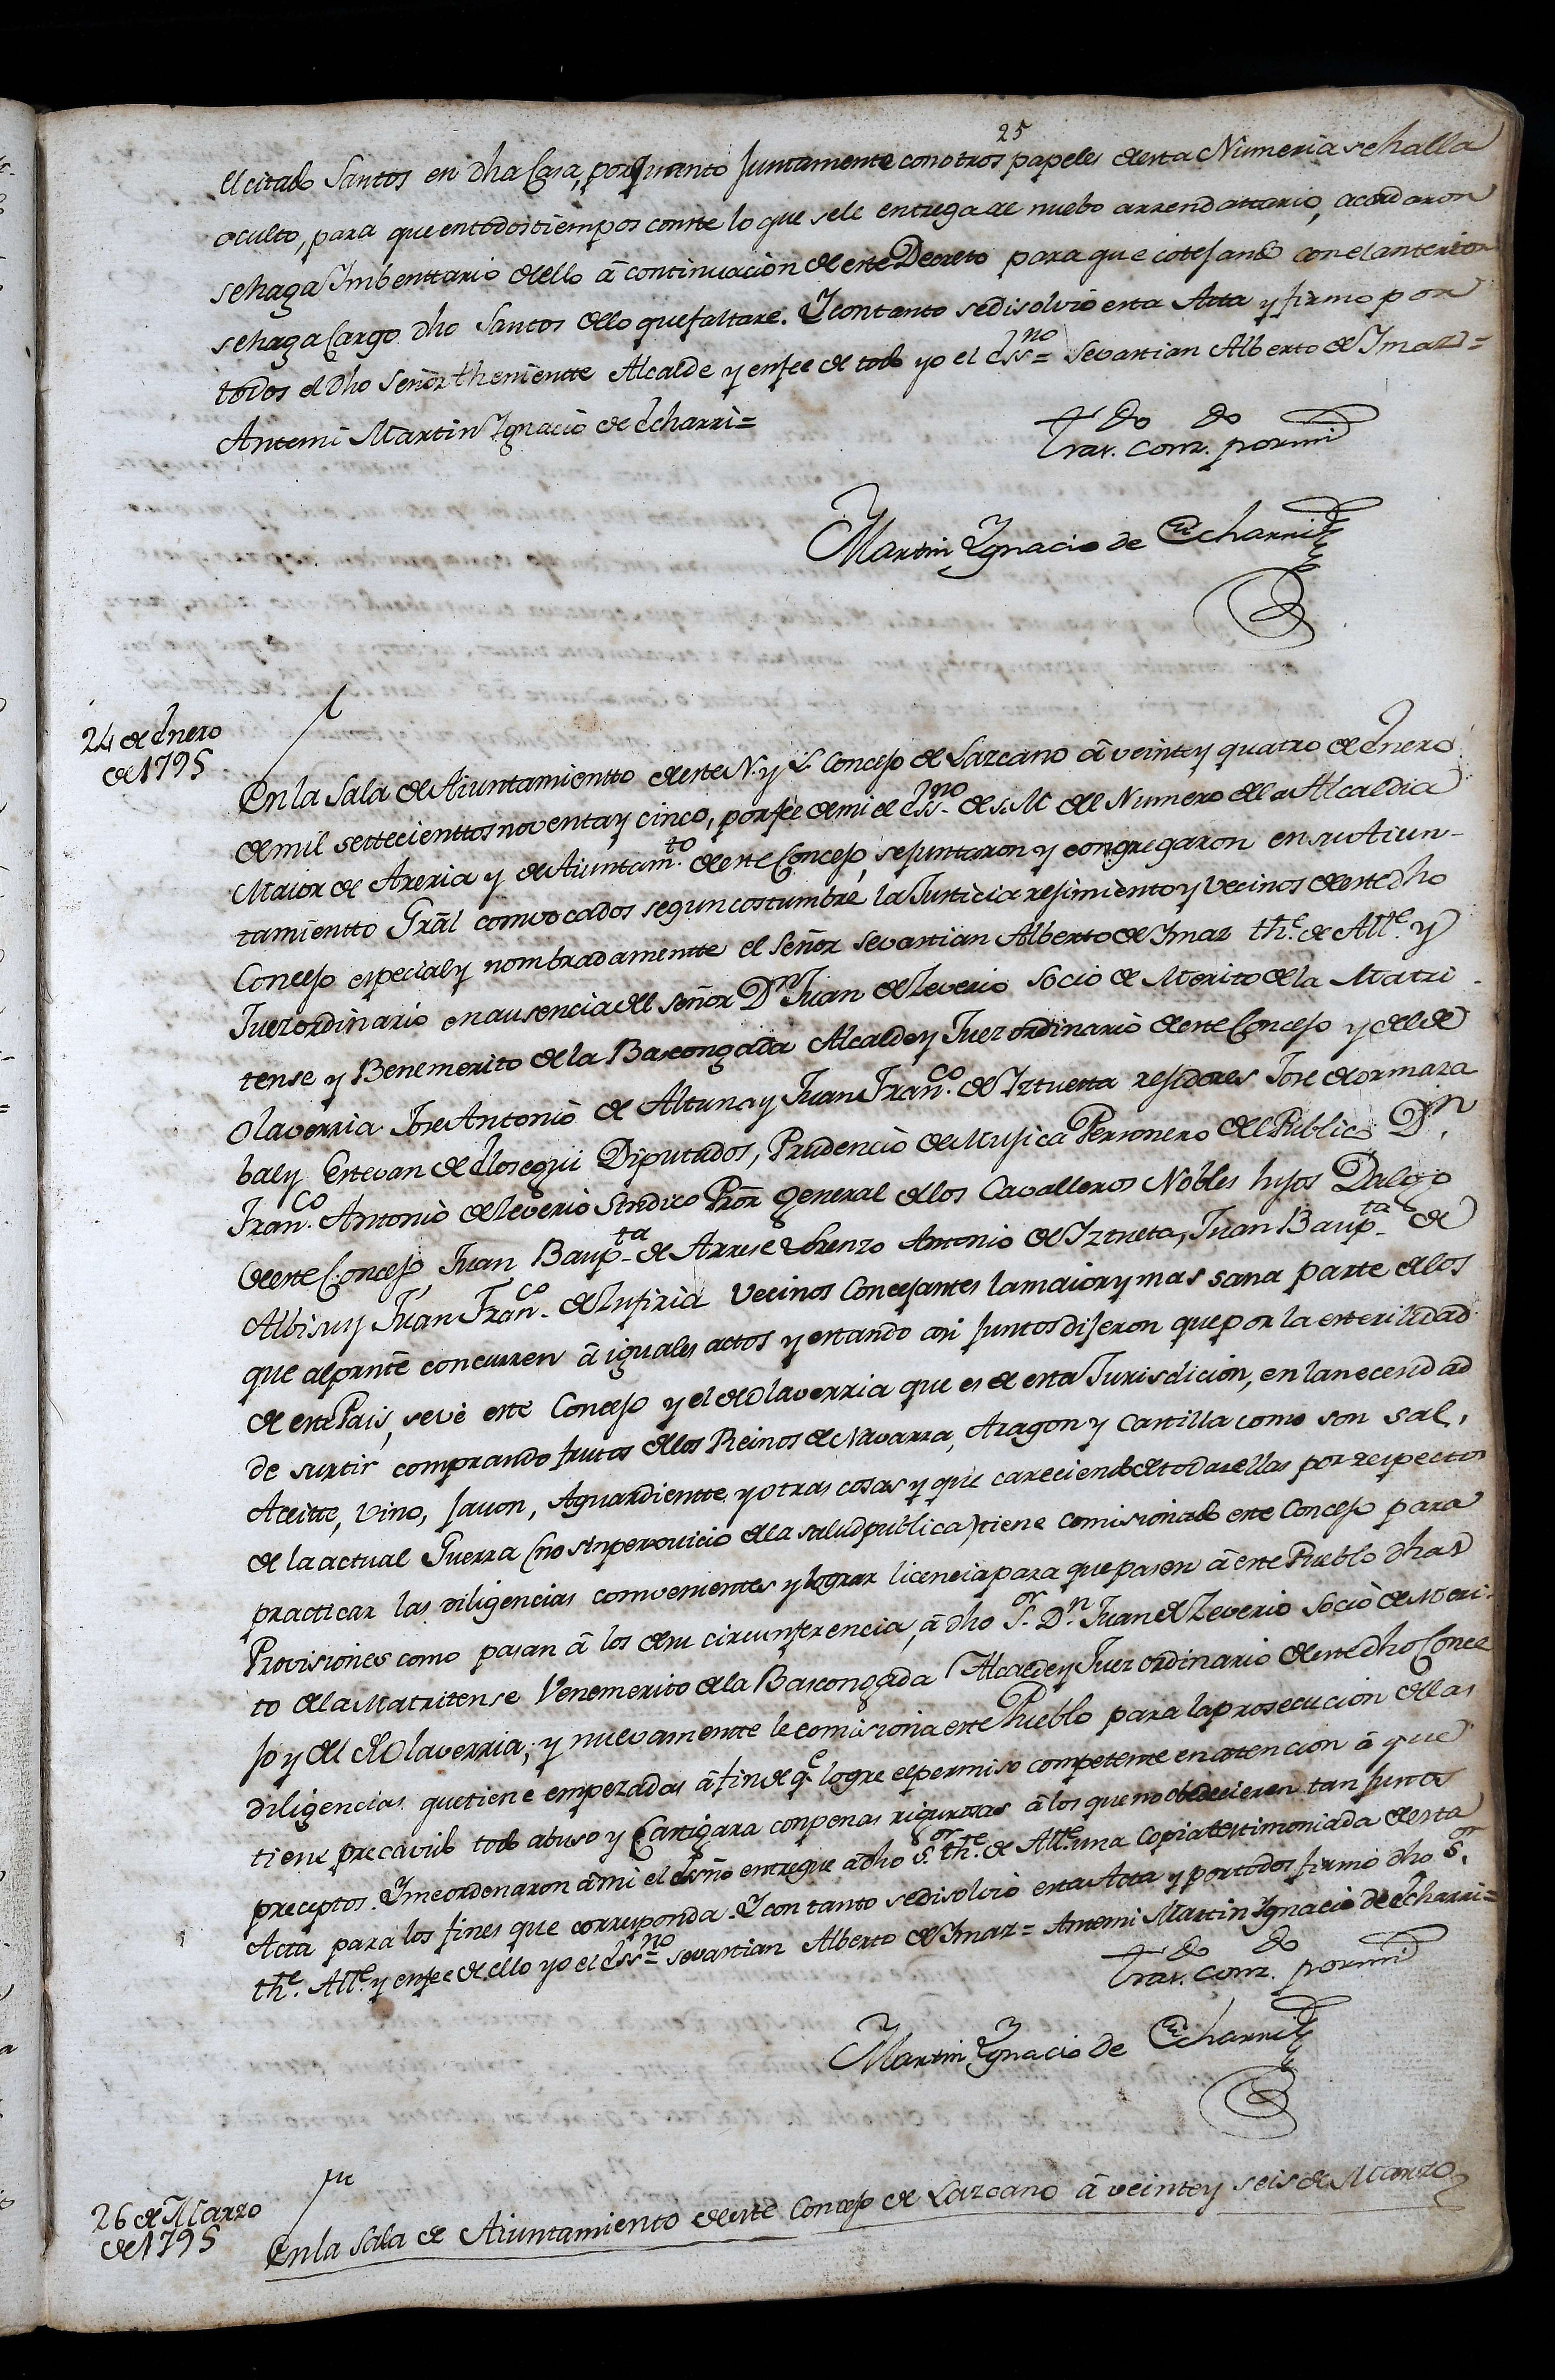 25
el citado Santos en dha Casa, por quanto juntamente con otros papeles de esta Numeria se halla
oculto, para que en todos tiempos conste lo que sele entrega ae nuebo arrendattario, acordaron
se haga Imbenttario de ello â continuacion de este Decreto para que cotejando con el anterior
se haga Cargo dho Santos de lo que faltare. Y con tanto se disolvió esta Acta y firmo por
todos el dho Señor theniente Alcalde y en fee de todo yo el Ess.no = Sevastian Alberto de Imaz =
Antemi Martin Ignacio de Echarri =
Tras.do Conz.do por mi
Martin Ygnacio de Echarri
24 de Enero
de 1795
En la Sala de Aiuntamientto de este N. y L. Concejo de Lazcano â veinte y quatro de Enero
de mil settecienttos noventa y cinco, por fee de mi el Ess.no de S. M. del Numero de la Alcaldia
Maior de Areria y de Aiuntam.to de este Concejo, se juntaron y congregaron en su Aiun-
tamientto Grãl comvocados segun costumbre la Justicia rejimiento y Vecinos de este dho
Concejo especial y nombradamentte el Señor Sevastian Alberto de Imaz th.e de All.e y
Juez ordinario en ausencia del Señor D.n Juan de Zeverio Socio de Merito de la Matri-
tense y Benemerito de la Bascongada Alcalde y Juez ordinario de este Concejo y del de
Olaverria Jose Antonio de Altuna y Juan Fran.co de Iztuetta rejidores Jose de Ormaza
bal y Estevan de Elosegui Diputados, Prudencio de Mujica Personero del Publico D.n
Fran.co Antonio de Zeverio Sindico Prõr General de los Cavalleros Nobles hijos Dalgo
de este Concejo, Juan Baup.ta de Arrese Lorenzo Antonio de Iztueta, Juan Baup.ta de
Albisu y Juan Fran.co de Zufiria Vecinos Concejantes la maior y mas sana parte de los
que al prãnte concurren â iguales actos y estando asi juntos dijeron que por la esterilidad
de este Pais, se vé este Concejo y el de Olaverria que es de esta Jurisdicion, en la necesidad
de surtir comprando frutos de los Reinos de Navarra, Aragon y Castilla como son Sal,
Aceitte, Vino, Javon, Aguardientte, y otras cosas y que careciendo de todas ellas por respectos
de la actual Guerra (no sin perjuicio de la salud publica) tiene comisionado este Concejo para
practicar las diligencias comvenientes y lograr licencia para que pasen â este Pueblo dhas
Provisiones como pasan â los de su circunferencia, â dho S.or D.n Juan de Zeverio Socio de Meri-
to de la Matritense Venemerito de la Bascongada Alcalde y Juez ordinario de este dho Conce
jo y del de Olaverria; y nuevamentte le comisiona este Pueblo para la prosecucion de las
diligencias que tiene empezadas â fin de q.e logre el permiso competente en atencion â que
tiene precavido todo abuso y Castigara con penas rigurosas â los que no obedecieren tan justos
preceptos. Y me ordenaron â mi el Essño entregue â dho S.or th.e de All.e una Copia testimoniada de esta
Acta para los fines que corresponda. Y con tanto se disolvió esta Acta y por todos firmó dho S.or
th.e All.e y en fee de ello yo el Ess.no = Sevastian Alberto de Imaz = Antemi Martin Ygnacio de Echarri =
Tras.do Conz.do por mi
Martin Ygnacio de Echarri
26 de Marzo
de 1795
En la Sala de Aiuntamiento de este Concejo de Lazcano â veinte y seis de Marzo